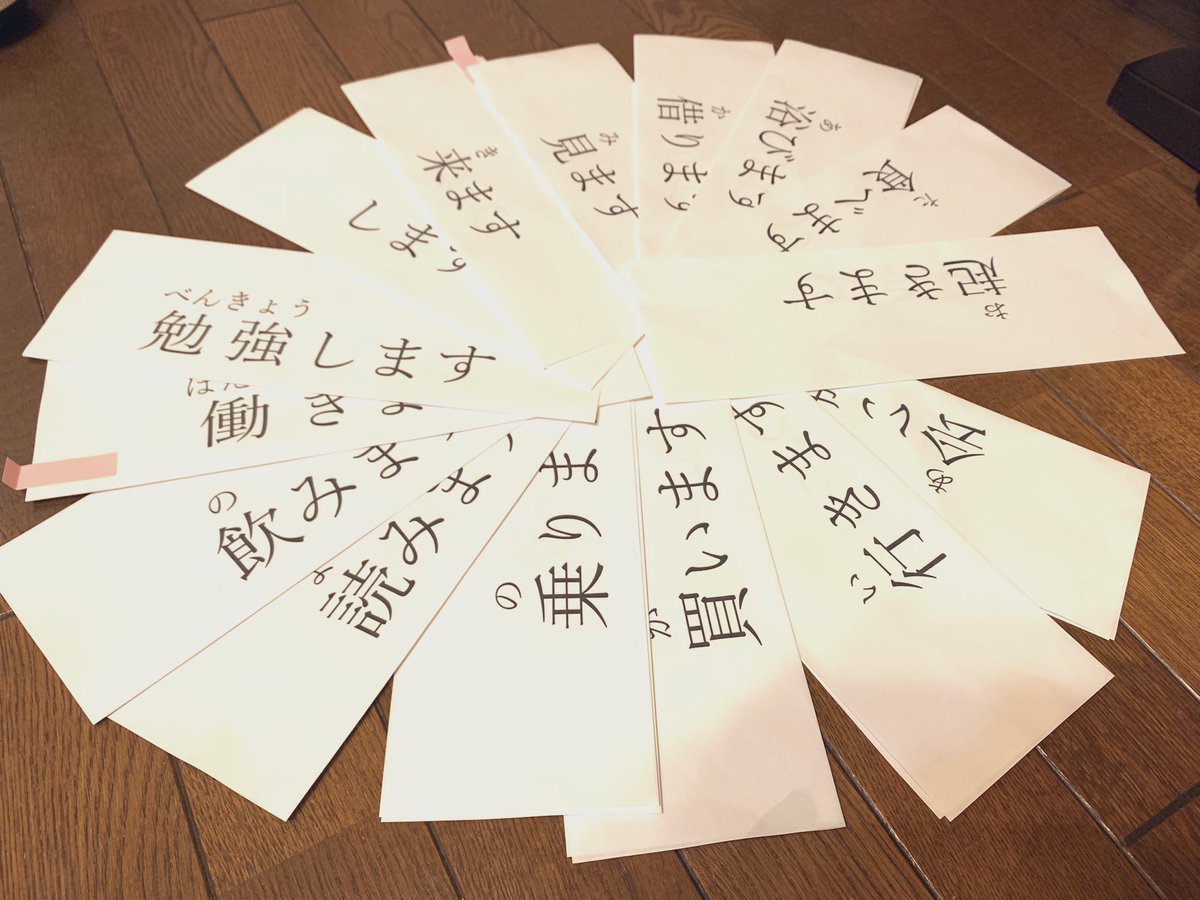 べんきょう
勉強します
します
き
来ます
み
見ます
か
借ります
あ
浴びます
た
食べます
お
起きます
あ
会い
い
行きます
か
買います
の
乗りま
よ
読みま
の
飲みま
はた
働きま